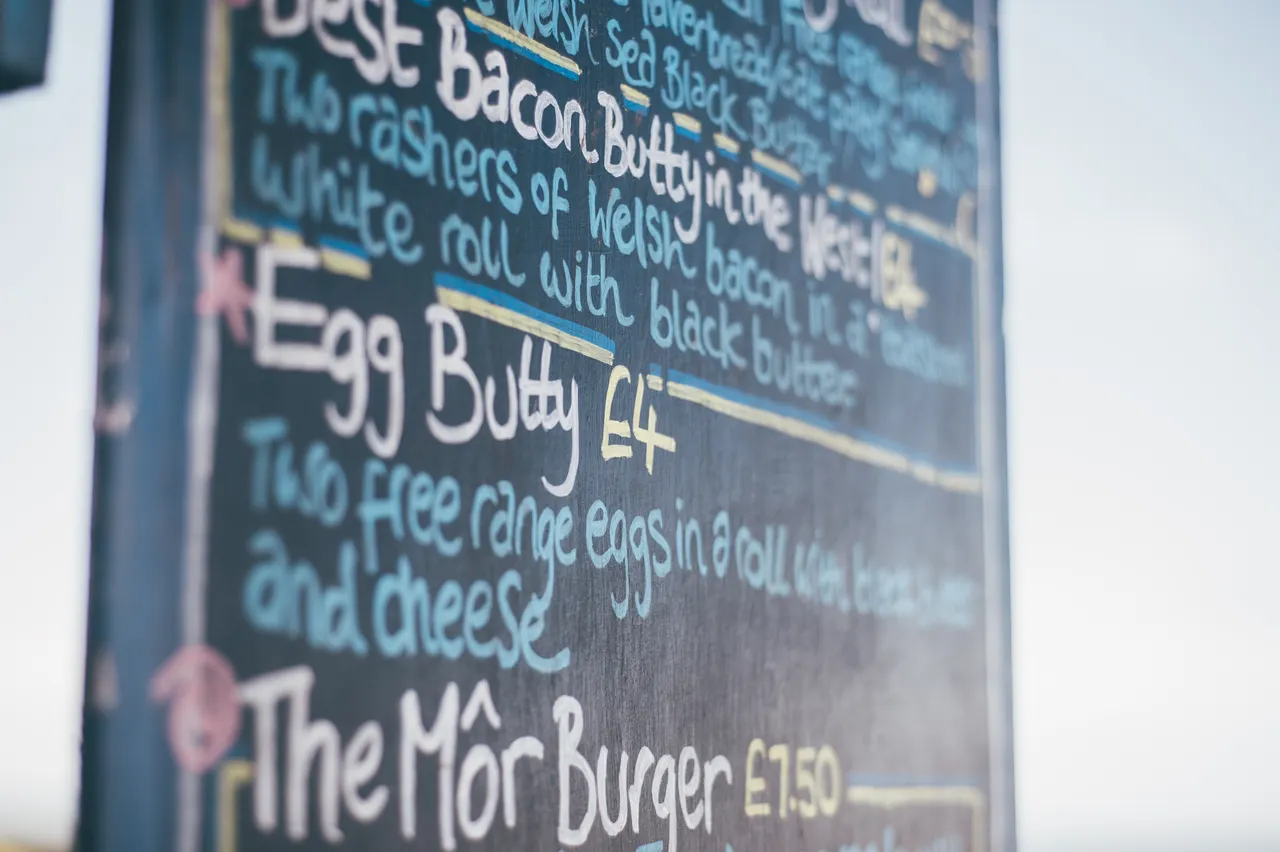 Welsh laverbread/oat patty
Welsh Sea Black Butter
Best Bacon Butty in the West! £4
Two rashers of Welsh bacon in a
white roll with black butter
Egg Butty £4
Two free range eggs in a roll with black butter
and cheese
The Môr Burger £7.50